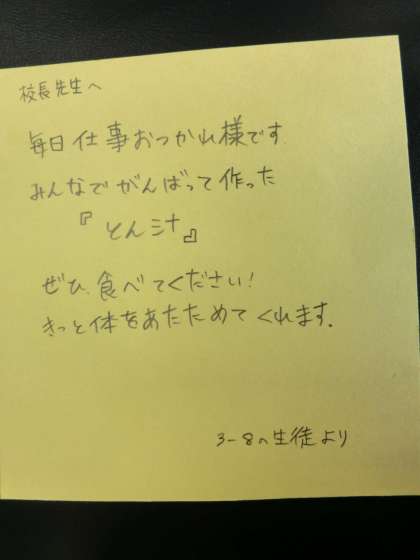 校長先生へ
毎日仕事おつかれ様です
みんなでがんばって作った
『とん汁』
ぜひ、食べてください!
きっと体をあたためてくれます。
3-8の生徒より